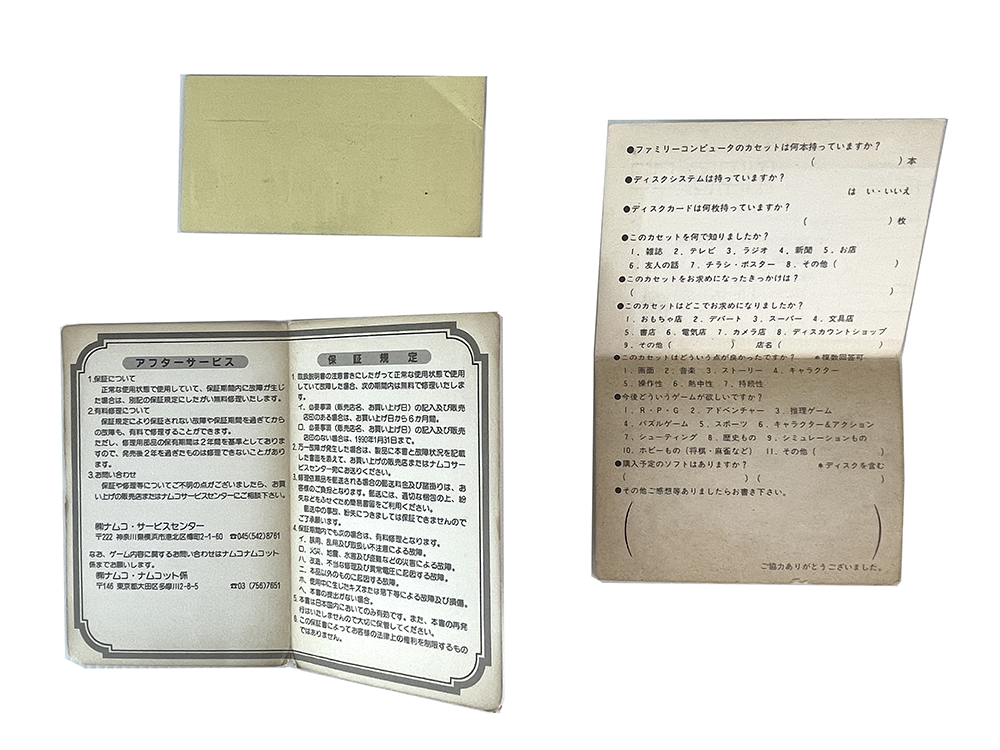 アフターサービス
1.保証について
正常な使用状態で使用していて、保証期間内に故障が生じ
た場合は、別記の保証規定にしたがい無料修理いたします。
2.有料修理について
保証規定により保証されない故障や保証期間を過ぎてから
の故障も、有料で修理することができます。
ただし、修理用部品の保有期間は2年間を基準としておりま
すので、発売後2年を過ぎたものは修理できないことがあり
ます。
3.お問い合わせ
保証や修理等についてご不明の点がございましたら、お買
い上げの販売店またはナムコサービスセンターにご相談下さい。
㈱ナムコ・サービスセンター
〒222 神奈川県横浜市港北区樽町2-1-60 ☎045(542)8761
なお、ゲーム内容に関するお問い合わせはナムコナムコット
係までお願いします。
㈱ナムコ・ナムコット係
〒146 東京都大田区多摩川2-8-5 ☎03 (756)7651
保証規定
1.取扱説明書の注意書きにしたがって正常な使用状態で使用
していて故障した場合、次の期間内は無料で修理いたしま
す。
イ、必要事項(販売店名、お買い上げ日)の記入及び販売
店印のある場合は、お買い上げ日から6か月間。
ロ、必要事項(販売店名、お買い上げ日)の記入及び販売
店印のない場合は、1990年1月31日まで。
2.万一故障が発生した場合は、製品に本書と故障状況を記載
した書面を添えて、お買い上げの販売店またはナムコサー
ビスセンター宛にお送りください。
3.修理依頼品を郵送される場合の郵送料金及び諸掛りは、お
客様のご負担となります。郵送には、適切な梱包の上、紛
失などをふせぐため簡易書留をご利用ください。
郵送中の事故、紛失につきましては保証できませんので
ご了承願います。
4.保証期間内でも次の場合は、有料修理となります。
イ、誤用、乱用及び取扱い不注意による故障。
ロ、火災、地震、水害及び盗難などの災害による故障。
ハ、改造、不当な修理及び異常電圧に起因する故障。
ニ、本品以外のものに起因する故障。
ホ、使用中に生じたキズまたは落下等による故障及び損傷。
ヘ、本書の提出がない場合。
5.本書は日本国内においてのみ有効です。また、本書の再発
行はいたしませんので大切に保管してください。
6.この保証書によってお客様の法律上の権利を制限するもの
ではありません。
●ファミリーコンピュータのカセットは何本持っていますか?
( )本
●ディスクシステムは持っていますか?
はい・いいえ
●ディスクカードは何枚持っていますか?
( )枚
●このカセットを何で知りましたか?
1.雑誌 2.テレビ 3.ラジオ 4.新聞 5.お店
6.友人の話 7.チラシ・ポスター 8.その他( )
●このカセットをお求めになったきっかけは?
( )
●このカセットはどこでお求めになりましたか?
1.おもちゃ店 2.デパート 3.スーパー 4.文具店
5.書店 6.電気店 7.カメラ店 8.ディスカウントショップ
9.その他( ) 店名( )
●このカセットはどういう点が良かったですか? ＊複数回答可
1.画面 2.音楽 3.ストーリー 4.キャラクター
5.操作性 6.熱中性 7.持続性
●今後どういうゲームが欲しいですか?
1.R・P・G 2.アドベンチャー 3.推理ゲーム
4.パズルゲーム 5.スポーツ 6.キャラクター&アクション
7.シューティング 8.歴史もの 9.シミュレーションもの
10.ホビーもの(将棋・麻雀など) 11.その他( )
●購入予定のソフトはありますか? ＊ディスクを含む
( ) ( )
●その他ご感想等ありましたらお書き下さい。
( )
ご協力ありがとうございました。